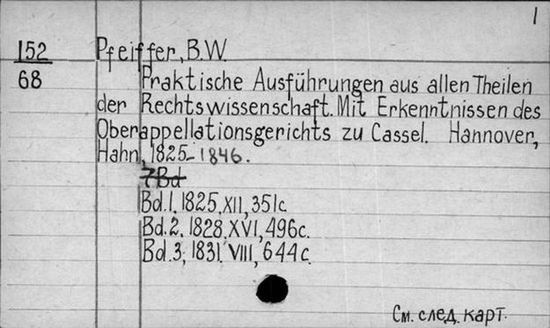 1
152
68
Pfeiffer, B.W.
Praktische Ausführungen aus allen Theilen
der Rechtswissenschaft. Mit Erkenntnissen des
Oberappellationsgerichts zu Cassel. Hannover,
Hahn, 1825-1846.
7 Bd
Bd.1. 1825. XII, 351 с
Bd.2. 1828. XVI, 496 с.
Bd.3, 1831. VIII, 644 с.
См. след. карт.